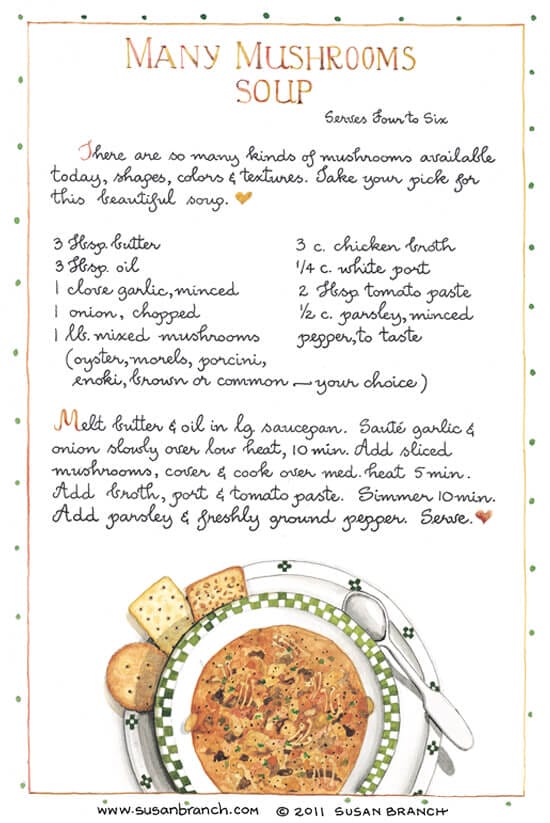 MANY MUSHROOMS
SOUP
Serves Four to Six
There are so many kinds of mushrooms available
today, shapes, colors & textures. Take your pick for
this beautiful soup.
3 Tbsp. butter
3 Tbsp. oil
1 clove garlic, minced
1 onion, chopped
1 lb. mixed mushrooms
(oyster, morels, porcini,
enoki, brown or common — your choice)
3 c. chicken broth
1/4 c. white port
2 Tbsp tomato paste
1/2 c. parsley, minced
pepper, to taste
Melt butter & oil in lg saucepan. Sauté garlic &
onion slowly over low heat, 10 min. Add sliced
mushrooms, cover & cook over med. heat 5 min.
Add broth, port & tomato paste. Simmer 10 min.
Add parsley & freshly ground pepper. Serve.
www.susanbranch.com © 2011 SUSAN BRANCH